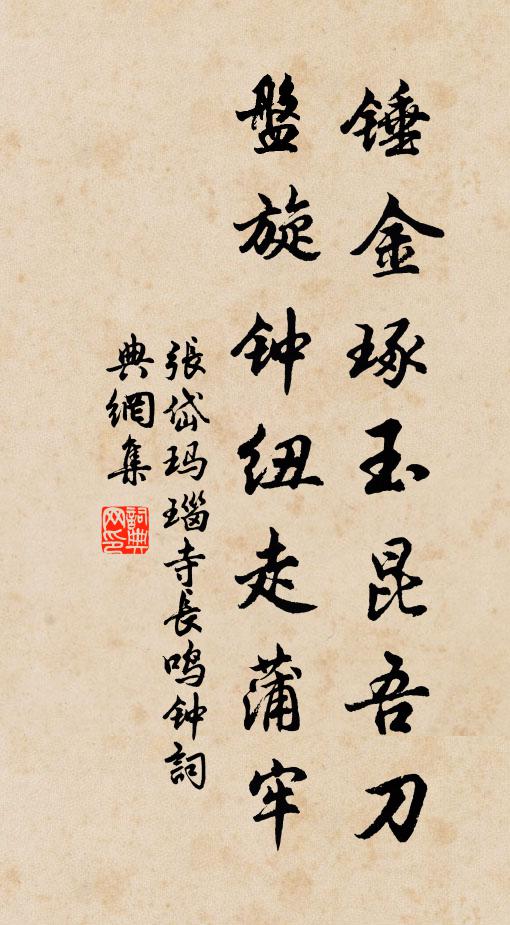 锤金琢玉昆吾刀
盤旋钟纽走蒲牢
張岱玛瑙寺長鸣钟詞
典網集
詞典
网印